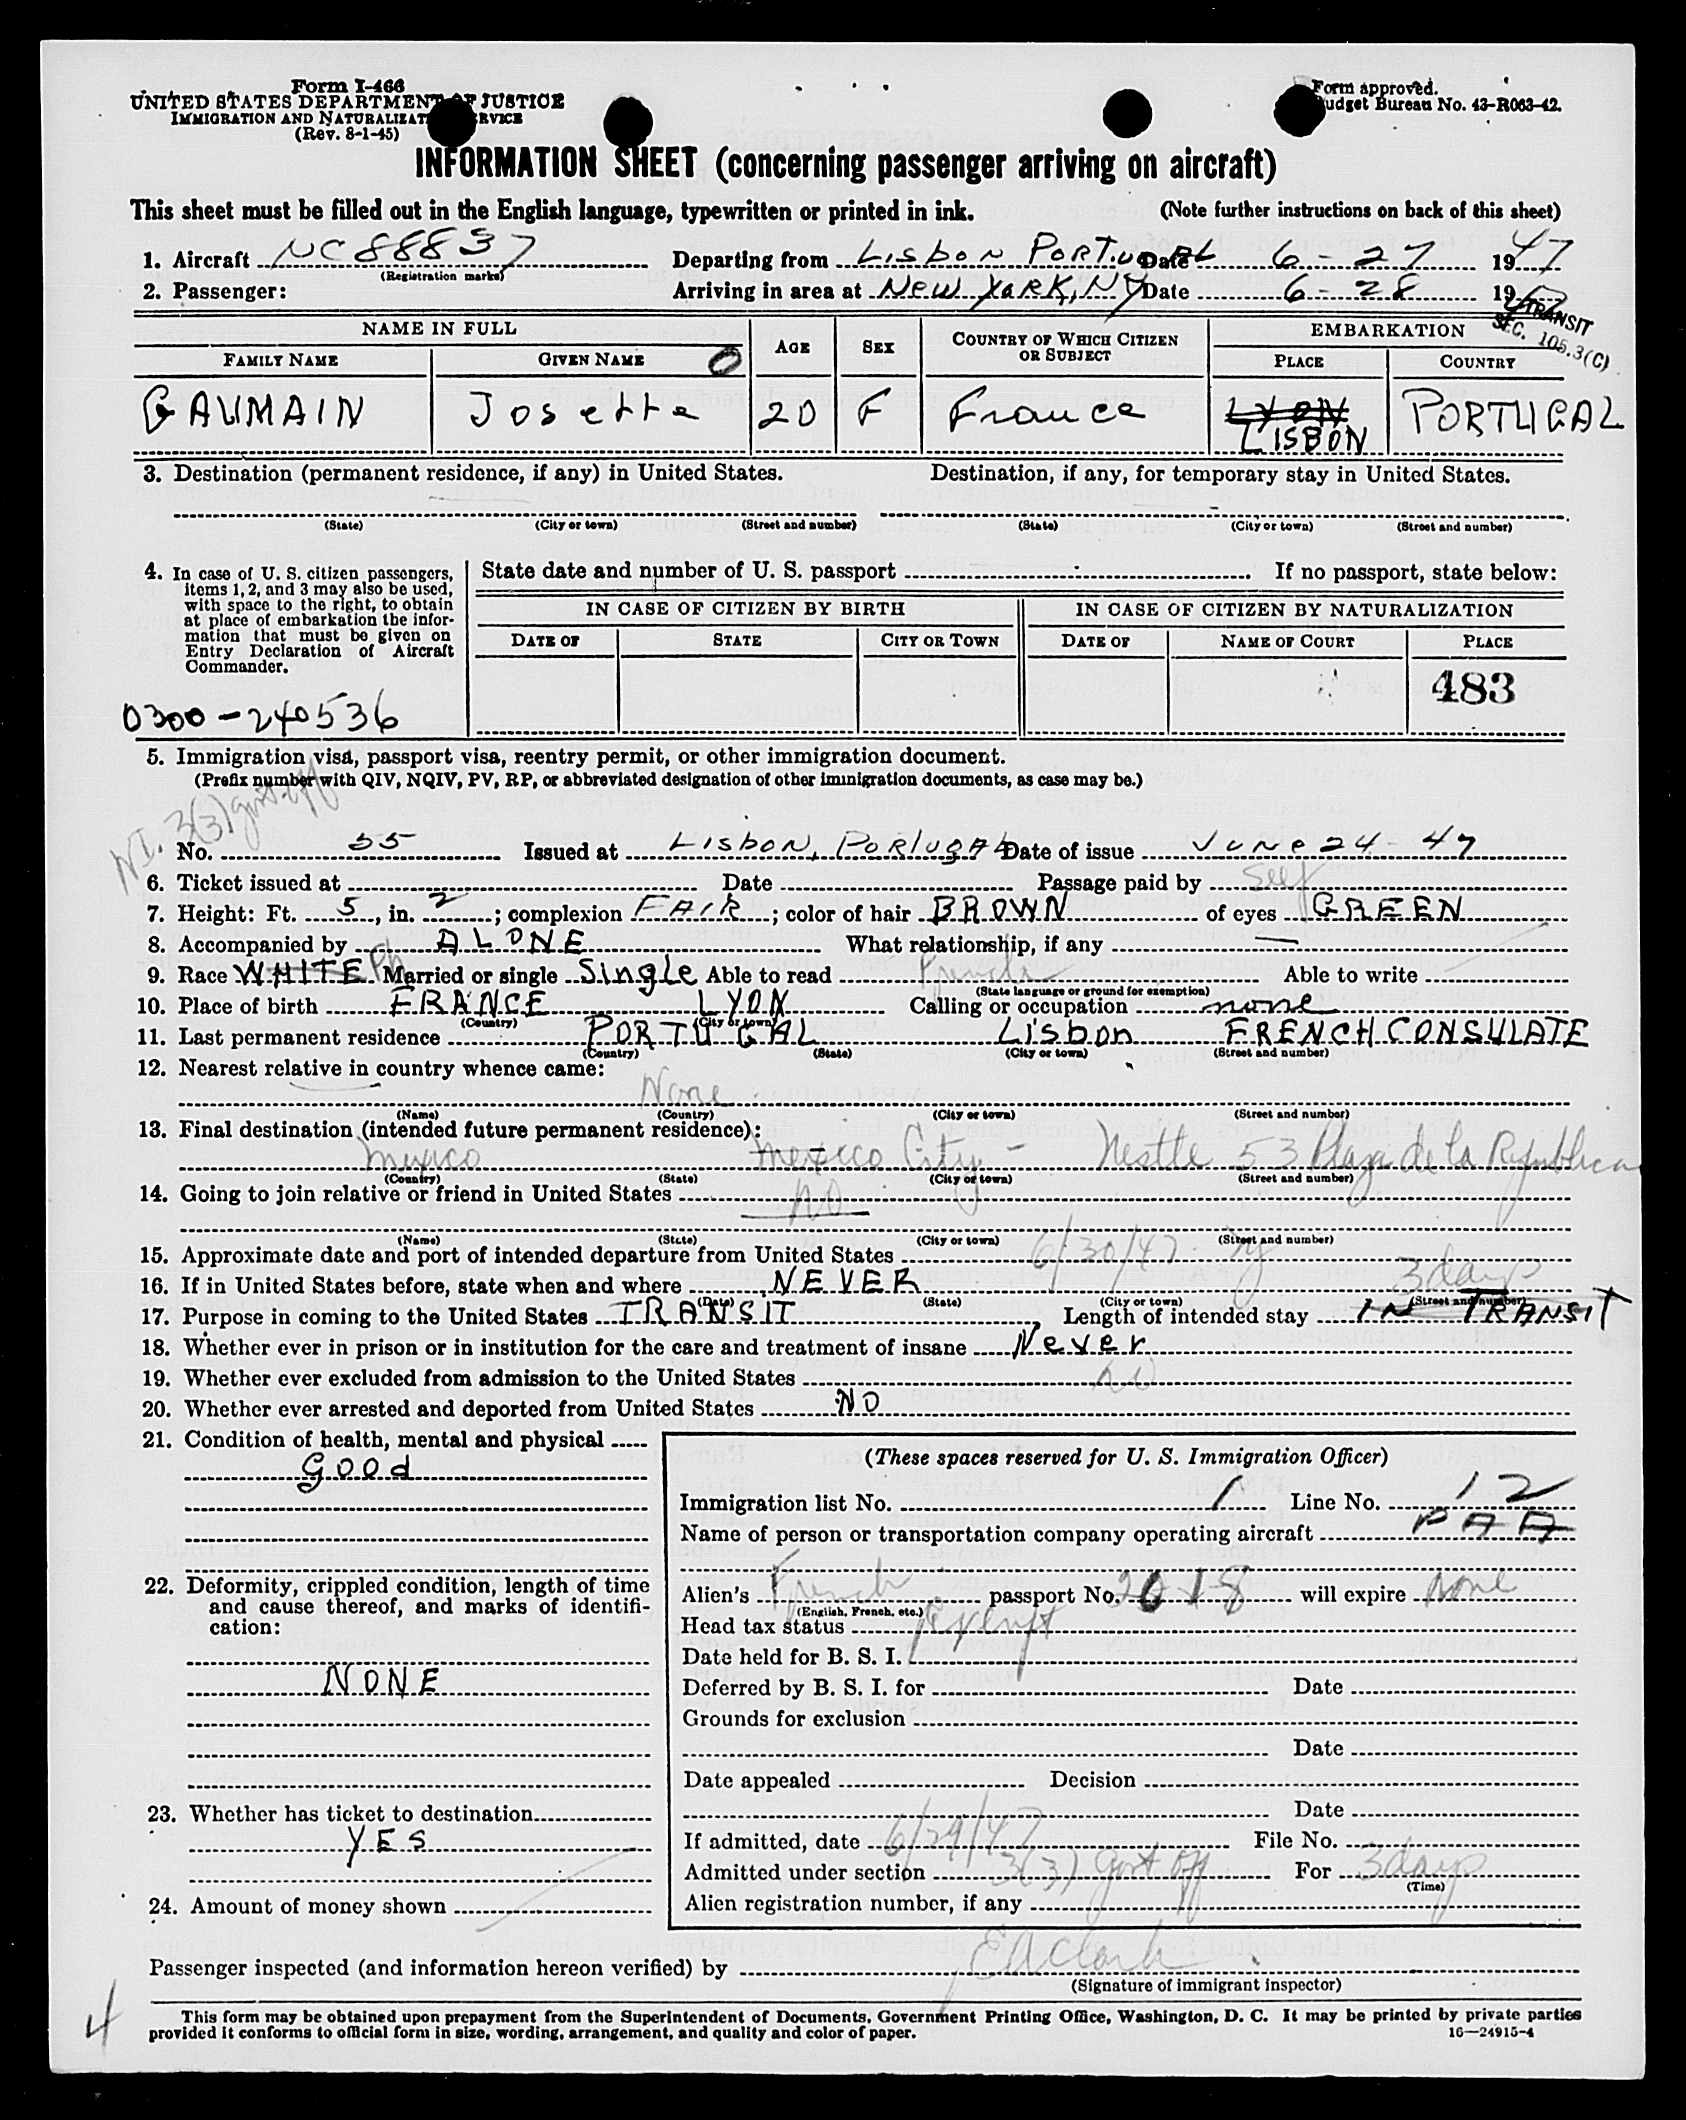 Form I-466
UNITED STATES DEPARTMENT OF JUSTICE
IMMIGRATION AND NATURALIZATION SERVICE
(Rev. 8-1-45)
Form approved.
Budget Bureau No. 43-R063-42.
INFORMATION SHEET (concerning passenger arriving on aircraft)
This sheet must be filled out in the English language, typewritten or printed in ink. (Note further instructions on back of this sheet)
1. Aircraft NC 88837 Departing from Lisbon PORTUGAL Date 6-27 1947
(Registration marks)
2. Passenger: Arriving in area at New York, NY Date 6-28 1947
TRANSIT
SEC. 105.3(C)
NAME IN FULL AGE SEX COUNTRY OF WHICH CITIZEN OR SUBJECT EMBARKATION
FAMILY NAME GIVEN NAME O PLACE COUNTRY
GAUMAIN Josette 20 F France LYON LISBON PORTUGAL
3. Destination (permanent residence, if any) in United States. Destination, if any, for temporary stay in United States.
(State) (City or town) (Street and number) (State) (City or town) (Street and number)
4. In case of U. S. citizen passengers, items 1, 2, and 3 may also be used, with space to the right, to obtain at place of embarkation the information that must be given on Entry Declaration of Aircraft Commander.
State date and number of U. S. passport If no passport, state below:
IN CASE OF CITIZEN BY BIRTH IN CASE OF CITIZEN BY NATURALIZATION
DATE OF STATE CITY OR TOWN DATE OF NAME OF COURT PLACE
483
0300-240536
5. Immigration visa, passport visa, reentry permit, or other immigration document.
(Prefix number with QIV, NQIV, PV, RP, or abbreviated designation of other immigration documents, as case may be.)
NI. 3(3) govt off
No. 55 Issued at Lisbon, Portugal Date of issue June 24-47
6. Ticket issued at Date Passage paid by Self
7. Height: Ft. 5, in. 2; complexion FAIR; color of hair BROWN of eyes GREEN
8. Accompanied by ALONE What relationship, if any —
9. Race WHITE Married or single Single Able to read French Able to write
(State language or ground for exemption)
10. Place of birth FRANCE LYON Calling or occupation none
(Country) (City or town)
11. Last permanent residence PORTUGAL Lisbon FRENCH CONSULATE
(Country) (State) (City or town) (Street and number)
12. Nearest relative in country whence came:
None
(Name) (Country) (City or town) (Street and number)
13. Final destination (intended future permanent residence):
Mexico Mexico City - Nestle 53 Plaza de la Republica
(Country) (State) (City or town) (Street and number)
14. Going to join relative or friend in United States NO
(Name) (State) (City or town) (Street and number)
15. Approximate date and port of intended departure from United States 6/30/47 NY
16. If in United States before, state when and where NEVER
(Date) (State) (City or town) (Street and number)
3 days
17. Purpose in coming to the United States TRANSIT Length of intended stay IN TRANSIT
18. Whether ever in prison or in institution for the care and treatment of insane Never
19. Whether ever excluded from admission to the United States NO
20. Whether ever arrested and deported from United States NO
21. Condition of health, mental and physical
Good
22. Deformity, crippled condition, length of time and cause thereof, and marks of identification:
NONE
23. Whether has ticket to destination
YES
24. Amount of money shown
(These spaces reserved for U. S. Immigration Officer)
Immigration list No. 1 Line No. 12
Name of person or transportation company operating aircraft PAA
Alien's French passport No. 2018 will expire none
(English, French, etc.)
Head tax status Exempt
Date held for B. S. I.
Deferred by B. S. I. for Date
Grounds for exclusion
Date
Date appealed Decision
Date
If admitted, date 6/29/47 File No.
Admitted under section 3(3) govt off For 3 days
(Time)
Alien registration number, if any
Passenger inspected (and information hereon verified) by EA Clark
(Signature of immigrant inspector)
4
This form may be obtained upon prepayment from the Superintendent of Documents, Government Printing Office, Washington, D. C. It may be printed by private parties
provided it conforms to official form in size, wording, arrangement, and quality and color of paper.
16—24915-4